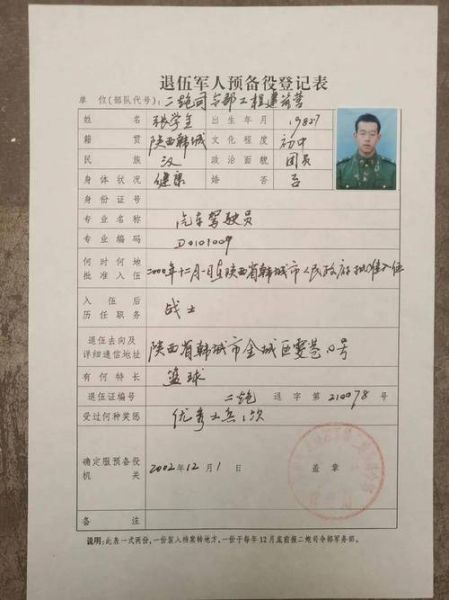 退伍军人预备役登记表
单 位(部队代号): 二炮司令部工程建筑营
姓 名 张学全 出生年月 1982.7
籍 贯 陕西韩城 文化程度 初中
民 族 汉 政治面貌 团员
身体状况 健康 婚 否 否
身份证号
专业名称 汽车驾驶员
专业编码 D0101009
何时何地批准入伍 2000年十二月一日在陕西省韩城市人民政府批准入伍
入伍后历任职务 战士
退伍去向及详细通信地址 陕西省韩城市金城区 号
有何特长 篮球
退伍证编号 二炮 退字第210078号
受过何种奖惩 优秀士兵1次
确定服预备役机关 2002年12月1日 盖章
备 注
说明:此表一式两份,一份装入档案转地方,一份于每年12月底前报二炮司令部军务部。